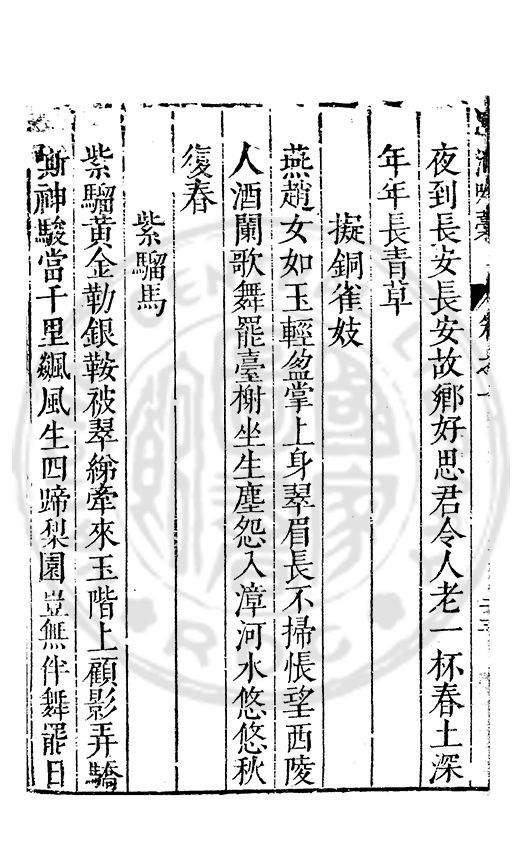 夜到長安長安故鄉好思君令人老一杯春土深
年年長青草
擬銅雀妓
燕趙女如玉輕盈掌上身翠眉長不掃悵望西陵
人酒闌歌舞罷臺榭坐生塵怨入漳河水悠悠秋
復春
紫騮馬
紫騮黃金勒銀鞍被翠緣牽來玉階上顧影弄驕
嘶神駿當千里飆風生四蹄梨園豈無伴舞罷日